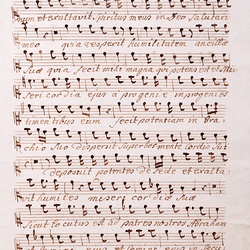 num et exultavit Spiritus meus in Deo Salutari
meo quia respexit humilitatem ancillæ
Suæ quia fecit mihi magna qui potens est et Mi
Seri cordia ejus a progenie in progenies
timentibus eum fecit potentiam in bra
chio Suo dispersit Superbos mente cordis Sui
deposuit potentes de Sede et exalta
vit humiles miseri cor diæ Suæ
Sicut locutus est ad patres nostros Abraham